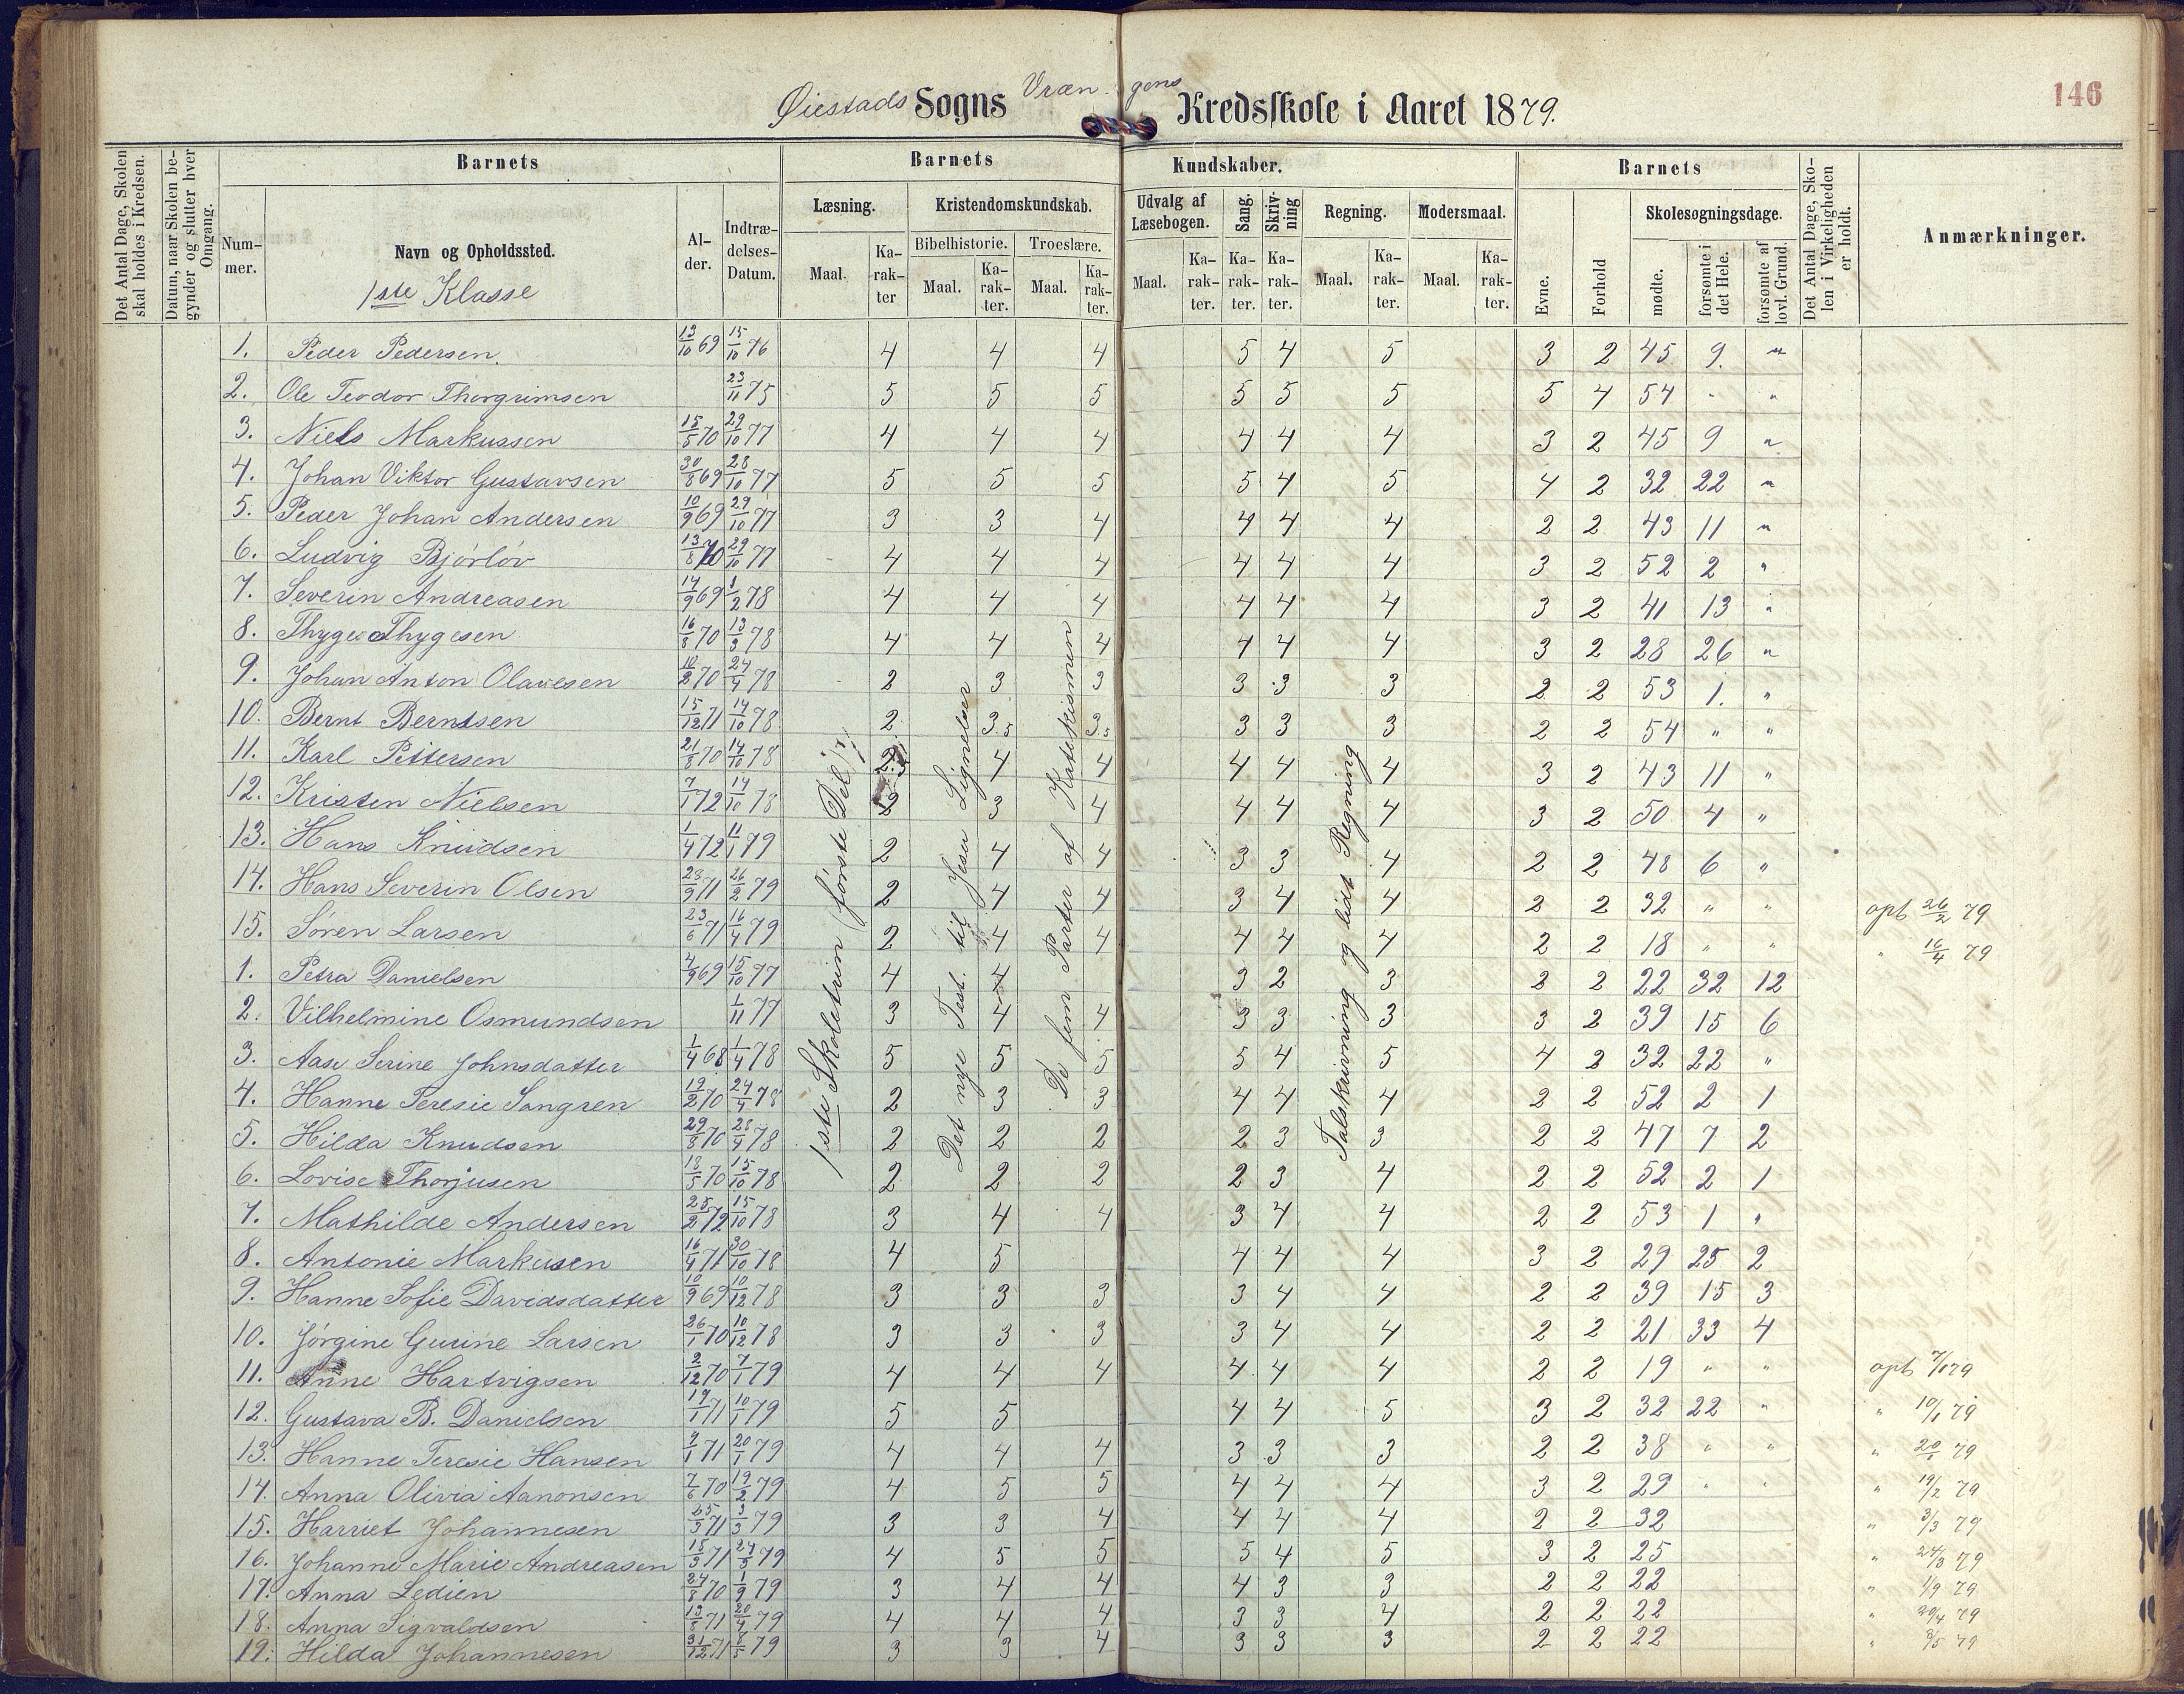 146
Øiestads Sogns Vræn-gens Kredsskole i Aaret 1879.
Det Antal Dage, Skolen skal holdes i Kredsen.
Datum, naar Skolen begynder og slutter hver Omgang.
Barnets
Nummer.
Navn og Opholdssted.
1ste Klasse
Alder.
Indtrædelses-Datum.
Barnets Kundskaber.
Læsning.
Maal.
Karakter
Kristendomskundskab.
Bibelhistorie.
Maal.
Karakter.
Troeslære.
Maal.
Karakter.
Udvalg af Læsebogen.
Maal.
Karakter.
Sang.
Karakter.
Skrivning
Karakter.
Regning.
Maal.
Karakter.
Modersmaal.
Maal.
Karakter.
Barnets
Evne.
Forhold
Skolesøgningsdage.
mødte.
forsømte i det Hele.
forsømte af lovl. Grund.
Det Antal Dage, Skolen i Virkeligheden er holdt.
Anmærkninger.
1ste Skoletrin (første Del)
Det nye Test. til Jesu Lignelser
De fem Parter af Katekismen
Talskrivning og lidt Regning
1. Peder Pedersen 13/10 69 15/10 76 4 4 4 5 4 5 3 2 45 9. "
2. Ole Teodor Thorgrimsen 23/11 75 5 5 5 5 5 5 5 4 54 " "
3. Niels Markussen 15/5 70 29/10 77 4 4 4 4 4 4 3 2 45 9 "
4. Johan Viktor Gustavsen 30/8 69 28/10 77 5 5 5 5 4 5 4 2 32 22 "
5. Peder Johan Andersen 10/9 69 29/10 77 3 3 4 4 4 4 2 2 43 11 "
6. Ludvig Bjørløv 13/8 70 29/10 77 4 4 4 4 4 4 3 2 52 2 "
7. Severin Andreasen 14/9 69 1/2 78 4 4 4 4 4 4 3 2 41 13 "
8. Thyge Thygesen 16/8 70 13/3 78 4 4 4 4 4 4 3 2 28 26 "
9. Johan Anton Olavesen 10/2 70 24/4 78 2 3 3 3 3 3 2 2 53 1. "
10. Bernt Berntsen 15/12 71 14/10 78 2 3.5 3.5 3 3 3 2 2 54 " "
11. Karl Pettersen 21/8 70 14/10 78 4 4 4 4 4 3 2 43 11 "
12. Kristen Nielsen 7/1 72 14/10 78 2 3 4 4 4 4 3 2 50 4 "
13. Hans Knudsen 1/4 72 11/1 79 2 4 4 3 3 4 2 2 48 6 "
14. Hans Severin Olsen 23/9 71 26/2 79 2 4 4 3 4 4 2 2 32 " " opt 26/2 79
15. Søren Larsen 23/6 71 16/4 79 2 4 4 4 4 4 2 2 18 " " " 16/4 79
1. Petra Danielsen 4/9 69 15/10 77 4 4 3 2 3 2 2 22 32 12
2. Vilhelmine Osmundsen 1/11 77 3 4 4 3 3 3 3 2 39 15 6
3. Aase Serine Johnsdatter 1/4 68 1/4 78 5 5 5 5 4 5 4 2 32 22 "
4. Hanne Teresie Sangren 19/2 70 24/4 78 2 3 3 4 4 4 2 2 52 2 1
5. Hilda Knudsen 29/8 70 28/4 78 2 2 2 2 3 3 2 2 47 7 2
6. Lovise Thorjusen 18/5 70 15/10 78 2 2 2 2 3 4 2 2 52 2 1
7. Mathilde Andersen 25/2 72 15/10 78 3 4 4 3 4 4 2 2 53 1 "
8. Antonie Markusen 16/4 71 30/10 78 4 5 4 4 4 3 2 29 25 2
9. Hanne Sofie Davidsdatter 10/9 69 10/12 78 3 3 3 3 4 4 2 2 39 15 3
10. Jørgine Gurine Larsen 26/1 70 10/12 78 3 3 3 3 4 4 2 2 21 33 4
11. Anne Hartvigsen 2/12 70 7/1 79 4 4 4 4 4 4 2 2 19 " " opt 7/1 79
12. Gustava B. Danielsen 19/1 71 10/1 79 5 5 4 4 5 3 2 32 22 " " 10/1 79
13. Hanne Teresie Hansen 9/1 71 20/1 79 4 4 4 3 3 3 2 2 38 " " " 20/1 79
14. Anna Olivia Aanonsen 7/6 70 19/2 79 4 5 5 4 4 4 3 2 29 " " " 19/2 79
15. Harriet Johannesen 25/3 71 3/3 79 3 3 4 4 4 4 2 2 32 " 3/3 79
16. Johanne Marie Andreasen 18/3 71 24/3 79 4 5 5 5 4 5 3 2 25 " 24/3 79
17. Anna Ledien 24/8 70 1/9 79 3 4 4 4 3 3 2 2 22 " 1/9 79
18. Anna Sigvaldsen 13/8 71 20/4 79 4 4 4 3 3 4 2 2 22 " 20/4 79
19. Hilda Johannesen 31/12 71 8/5 79 3 3 4 3 3 3 2 2 22 " 8/5 79